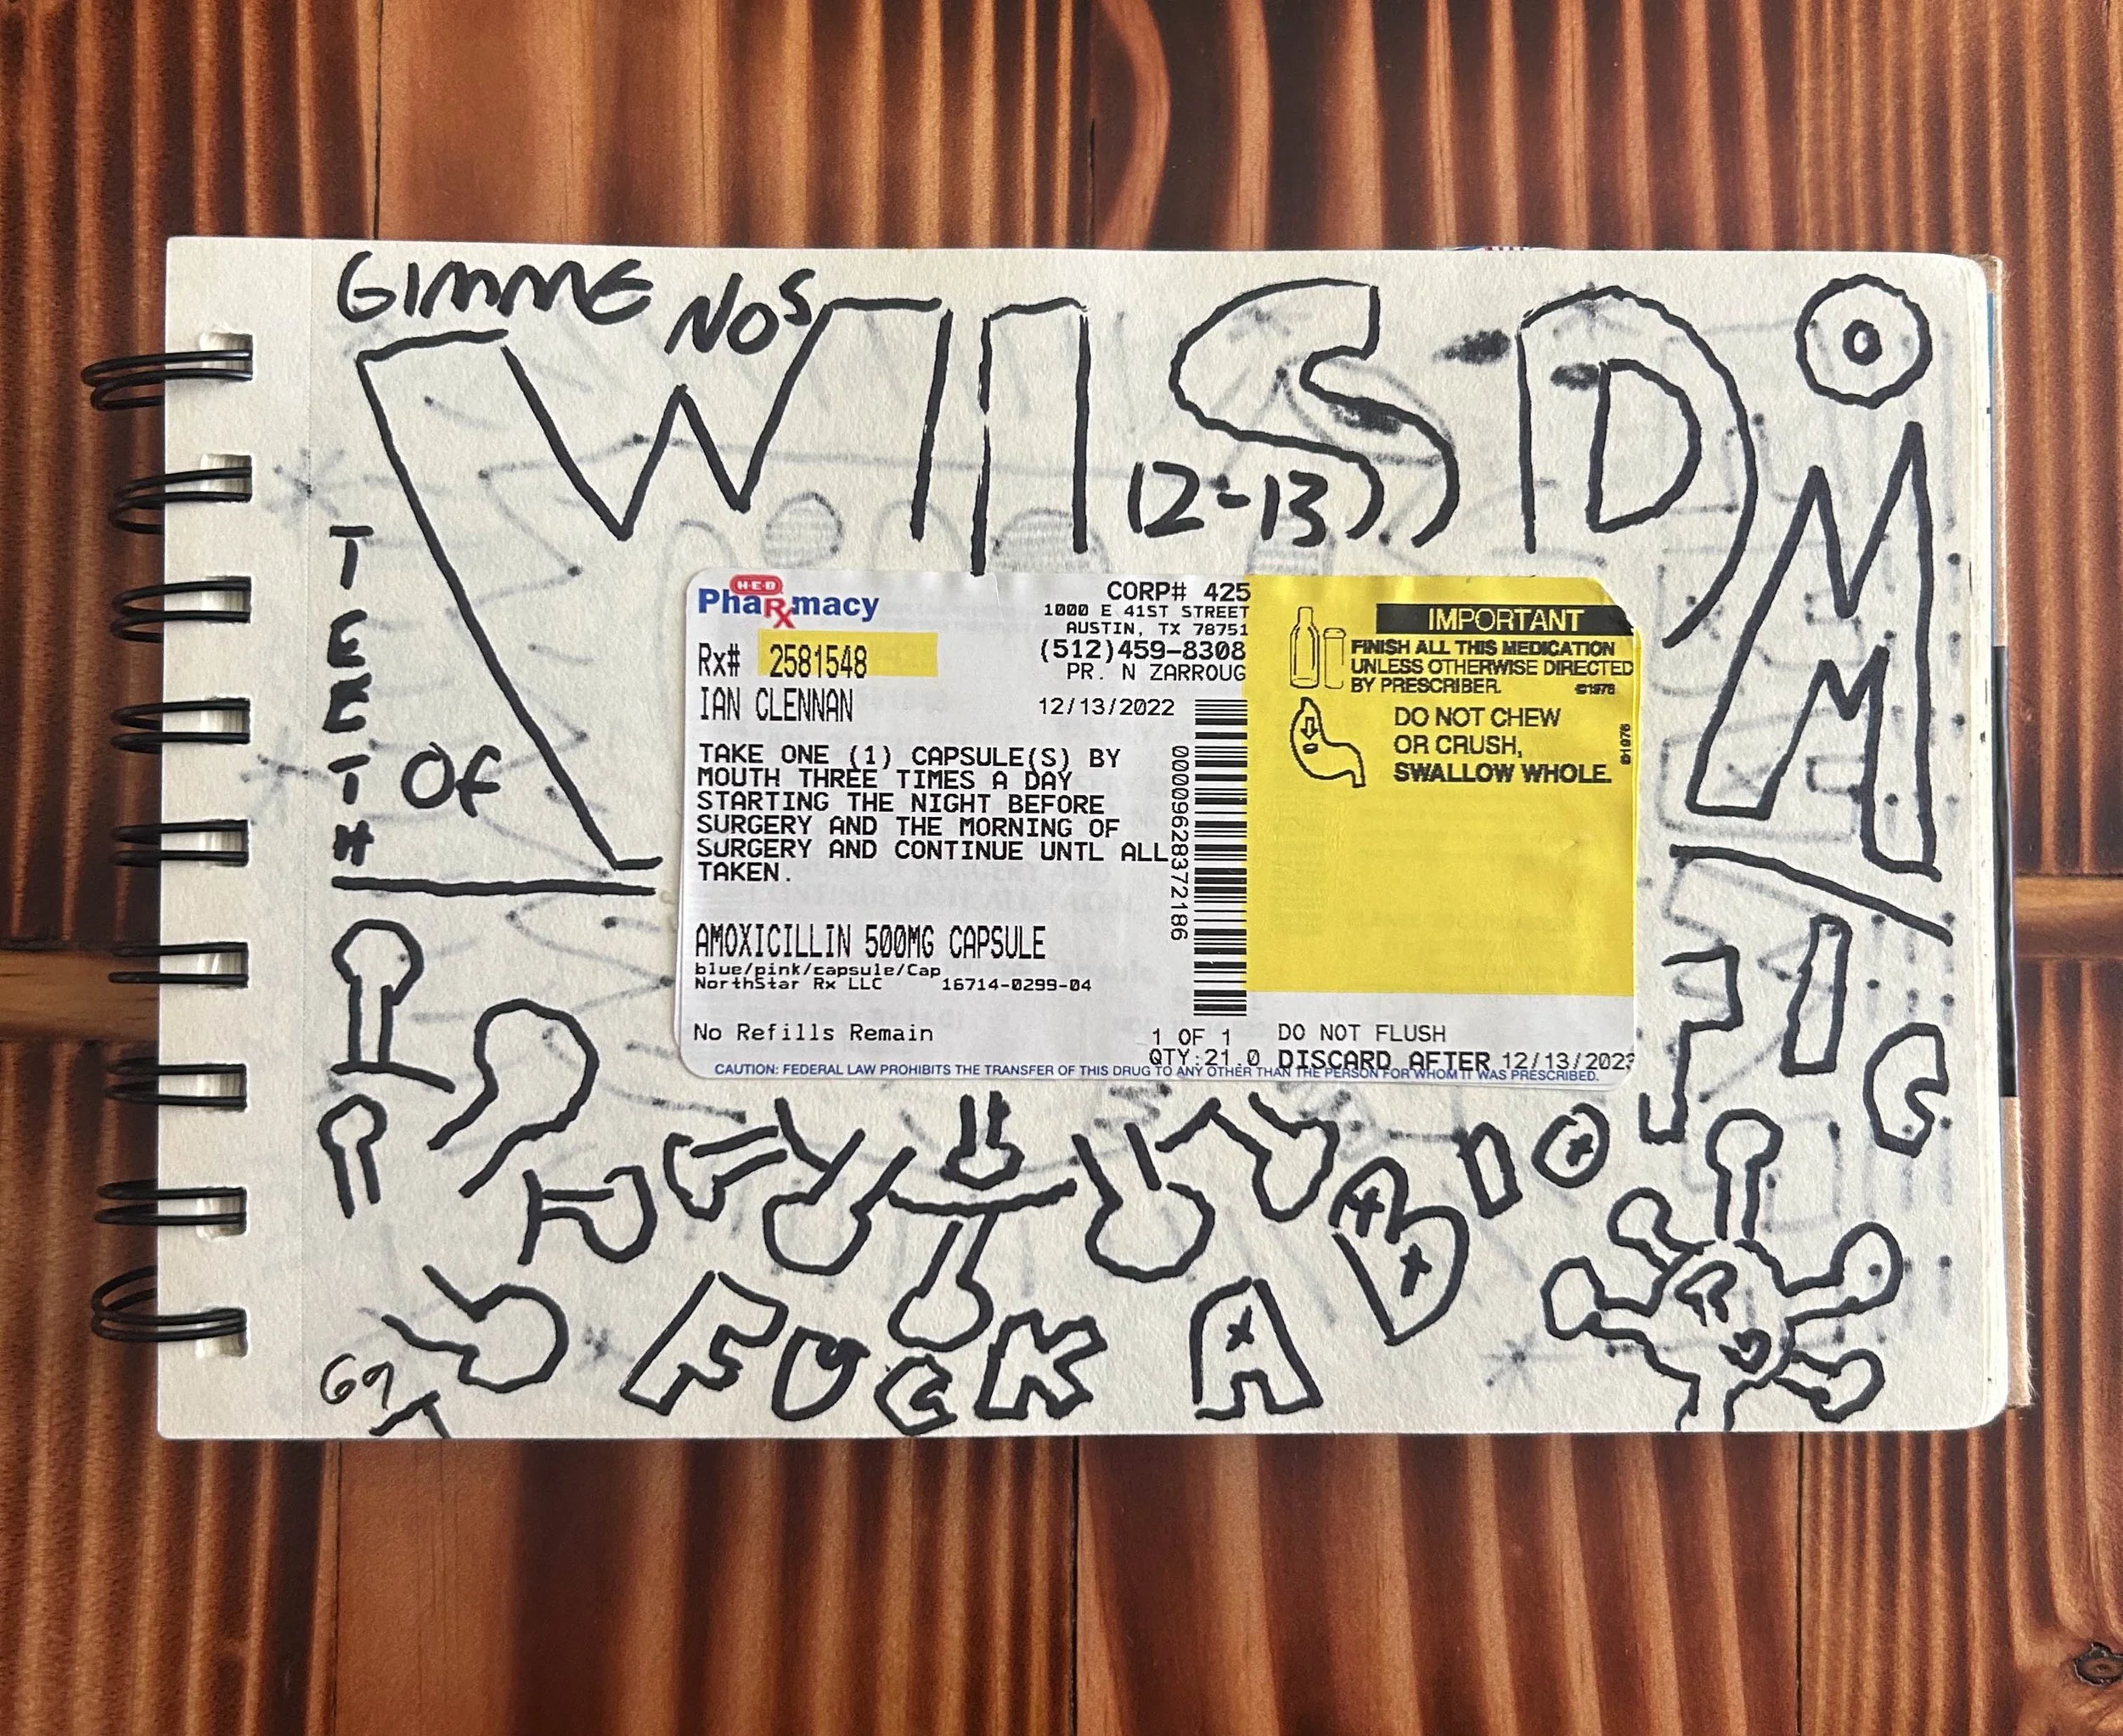 GIMME NOS
WISDOM
12-13
TEETH
Of
H-E-B
PhaRmacy
CORP# 425
1000 E 41ST STREET
AUSTIN, TX 78751
(512)459-8308
PR. N ZARROUG
Rx# 2581548
IAN CLENNAN
12/13/2022
TAKE ONE (1) CAPSULE(S) BY
MOUTH THREE TIMES A DAY
STARTING THE NIGHT BEFORE
SURGERY AND THE MORNING OF
SURGERY AND CONTINUE UNTL ALL
TAKEN.
00009628372186
AMOXICILLIN 500MG CAPSULE
blue/pink/capsule/Cap
NorthStar Rx LLC 16714-0299-04
No Refills Remain
1 OF 1
QTY:21.0
IMPORTANT
FINISH ALL THIS MEDICATION
UNLESS OTHERWISE DIRECTED
BY PRESCRIBER.
©1976
DO NOT CHEW
OR CRUSH,
SWALLOW WHOLE.
©1976
DO NOT FLUSH
DISCARD AFTER 12/13/2023
CAUTION: FEDERAL LAW PROHIBITS THE TRANSFER OF THIS DRUG TO ANY OTHER THAN THE PERSON FOR WHOM IT WAS PRESCRIBED.
FUCK
A
BIO
TIC
69